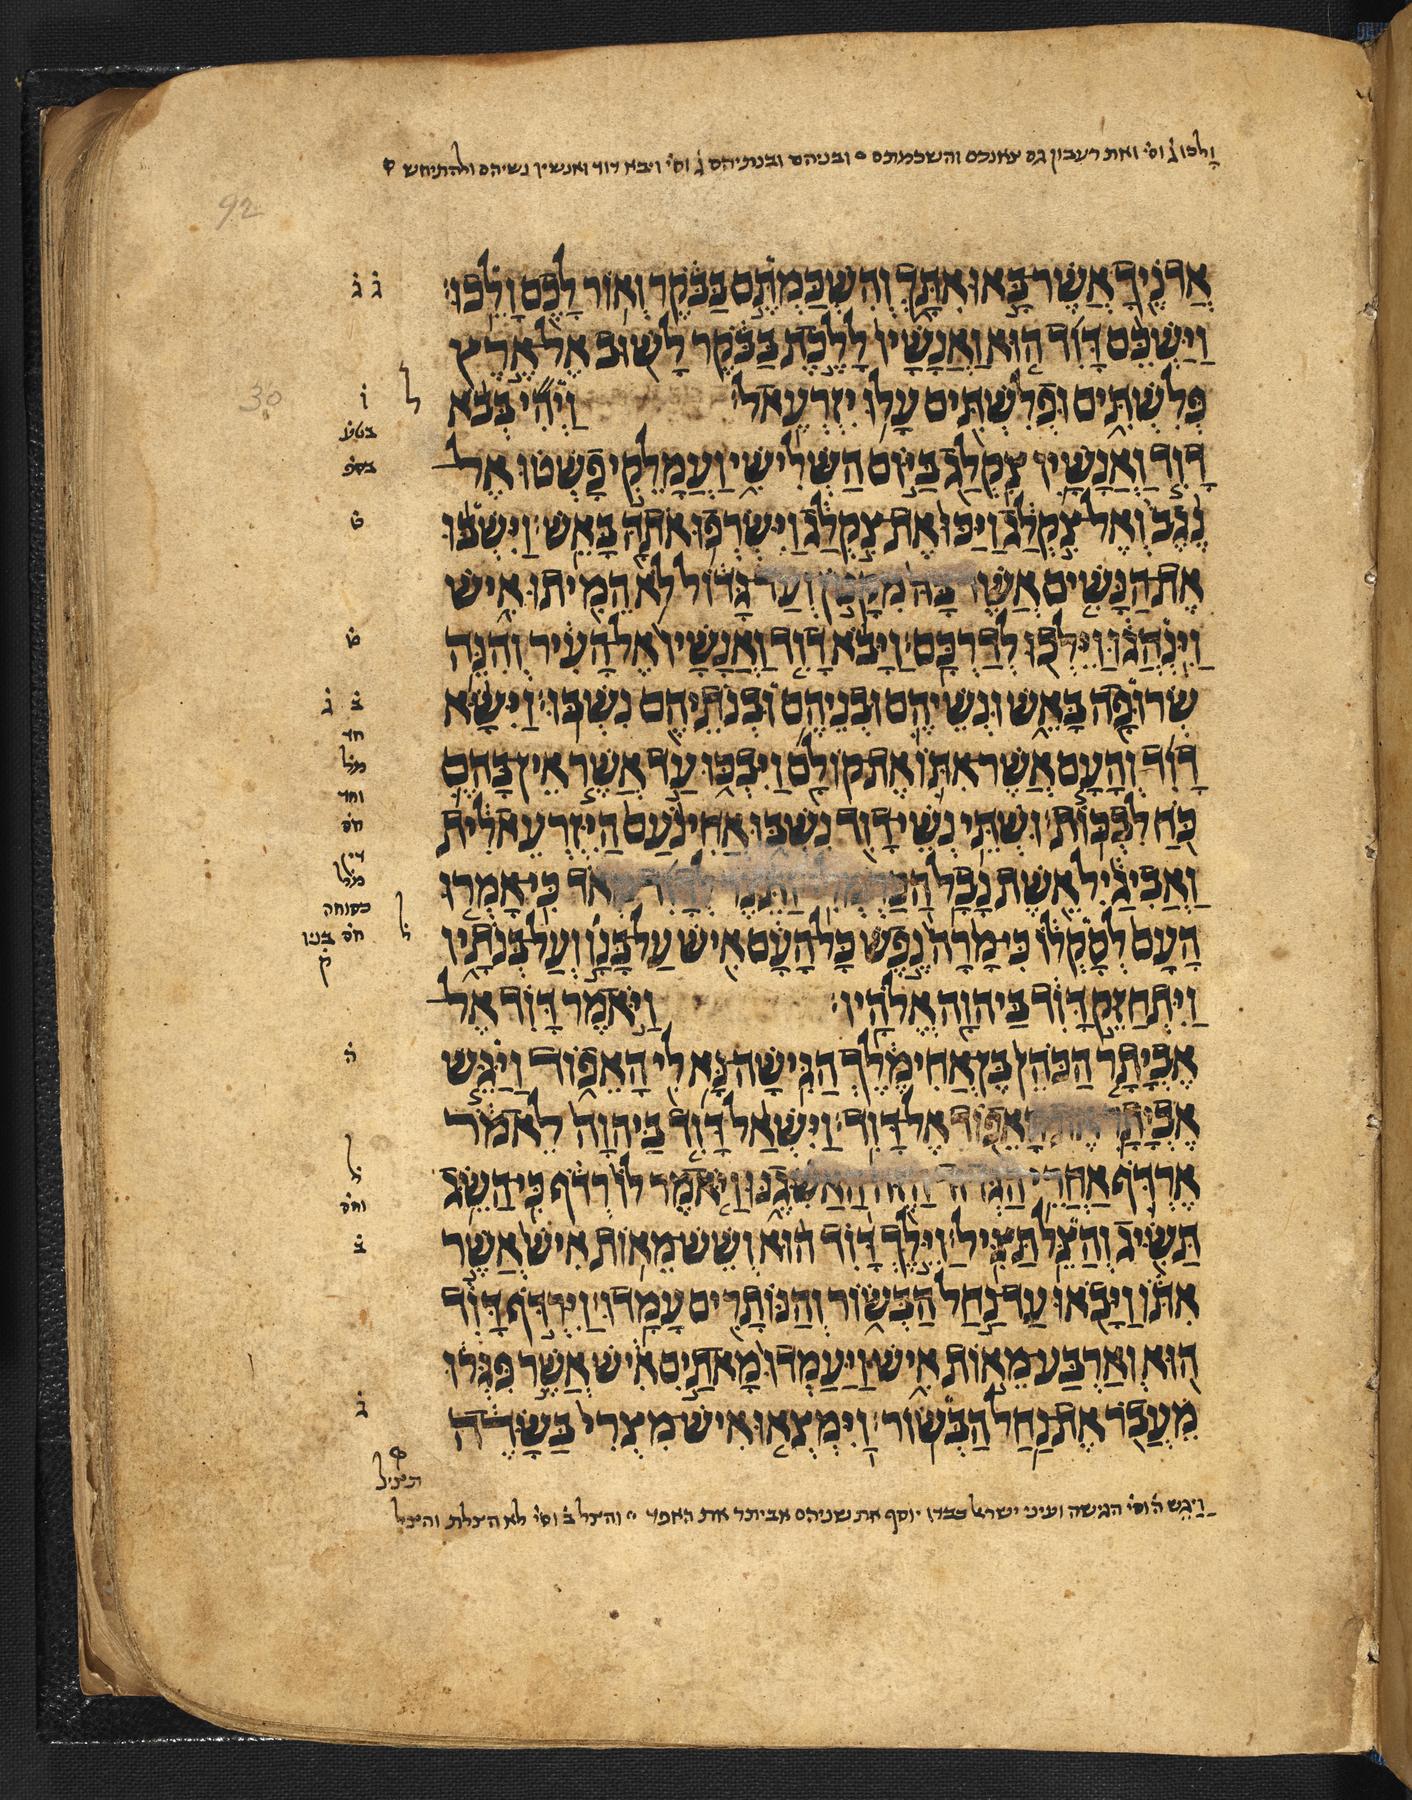 ולכו ג וס׳ ואת רעבון גם צאנכם והשכמתם ס ובניהם ובנתיהם ג וס׳ ויבא דוד ואנשיו נשיהם ולהתיחש
92
אֲדֹנֶיךָ אֲשֶׁר בָּאוּ אִתָּךְ וְהִשְׁכַּמְתֶּם בַּבֹּקֶר וְאוֹר לָכֶם וָלֵכוּ׃
ג ג
וַיַּשְׁכֵּם דָּוִד הוּא וַאֲנָשָׁיו לָלֶכֶת בַּבֹּקֶר לָשׁוּב אֶל אֶרֶץ
פְּלִשְׁתִּים וּפְלִשְׁתִּים עָלוּ יִזְרְעֶאל׃ וַיְהִי בְּבֹא
ל ו
30
דָּוִד וַאֲנָשָׁיו צִקְלַג בַּיּוֹם הַשְּׁלִישִׁי וַעֲמָלֵקִי פָשְׁטוּ אֶל
נֶגֶב וְאֶל צִקְלַג וַיַּכּוּ אֶת צִקְלַג וַיִּשְׂרְפוּ אֹתָהּ בָּאֵשׁ׃ וַיִּשְׁבּוּ
ט
אֶת הַנָּשִׁים אֲשֶׁר בָּהּ מִקָּטֹן וְעַד גָּדוֹל לֹא הֵמִיתוּ אִישׁ
וַיִּנְהֲגוּ וַיֵּלְכוּ לְדַרְכָּם׃ וַיָּבֹא דָוִד וַאֲנָשָׁיו אֶל הָעִיר וְהִנֵּה
שְׂרוּפָה בָּאֵשׁ וּנְשֵׁיהֶם וּבְנֵיהֶם וּבְנֹתֵיהֶם נִשְׁבּוּ׃ וַיִּשָּׂא
ב ג
דָּוִד וְהָעָם אֲשֶׁר אִתּוֹ אֶת קוֹלָם וַיִּבְכּוּ עַד אֲשֶׁר אֵין בָּהֶם
חד
מל
וחד
חס
כֹּחַ לִבְכּוֹת׃ וּשְׁתֵּי נְשֵׁי דָוִד נִשְׁבּוּ אֲחִינֹעַם הַיִּזְרְעֵאלִית
וַאֲבִיגַיִל אֵשֶׁת נָבָל הַכַּרְמְלִי׃ וַתֵּצֶר לְדָוִד מְאֹד כִּי אָמְרוּ
הָעָם לְסָקְלוֹ כִּי מָרָה נֶפֶשׁ כָּל הָעָם אִישׁ עַל בָּנָו וְעַל בְּנֹתָיו
ל חס בניו
ק
וַיִּתְחַזֵּק דָּוִד בַּיהוָה אֱלֹהָיו׃ וַיֹּאמֶר דָּוִד אֶל
אֶבְיָתָר הַכֹּהֵן בֶּן אֲחִימֶלֶךְ הַגִּישָׁה נָּא לִי הָאֵפוֹד וַיַּגֵּשׁ
ה
אֶבְיָתָר אֶת הָאֵפוֹד אֶל דָּוִד׃ וַיִּשְׁאַל דָּוִד בַּיהוָה לֵאמֹר
אֶרְדֹּף אַחֲרֵי הַגְּדוּד הַזֶּה הַאַשִּׂגֶנּוּ וַיֹּאמֶר לוֹ רְדֹף כִּי הַשֵּׂג
ל
וחס
תַּשִּׂיג וְהַצֵּל תַּצִּיל׃ וַיֵּלֶךְ דָּוִד הוּא וְשֵׁשׁ מֵאוֹת אִישׁ אֲשֶׁר
ב
אִתּוֹ וַיָּבֹאוּ עַד נַחַל הַבְּשׂוֹר וְהַנּוֹתָרִים עָמָדוּ׃ וַיִּרְדֹּף דָּוִד
הוּא וְאַרְבַּע מֵאוֹת אִישׁ וַיַּעַמְדוּ מָאתַיִם אִישׁ אֲשֶׁר פִּגְּרוּ
מֵעֲבֹר אֶת נַחַל הַבְּשׂוֹר׃ וַיִּמְצְאוּ אִישׁ מִצְרִי בַּשָּׂדֶה
ג
תציל
וַיַּגֵּשׁ ה וס׳ הגישה ועיני ישראל כבדו יוסף את שניהם אביתר את האפד ס והצל ב וס׳ לא הצלת והצל